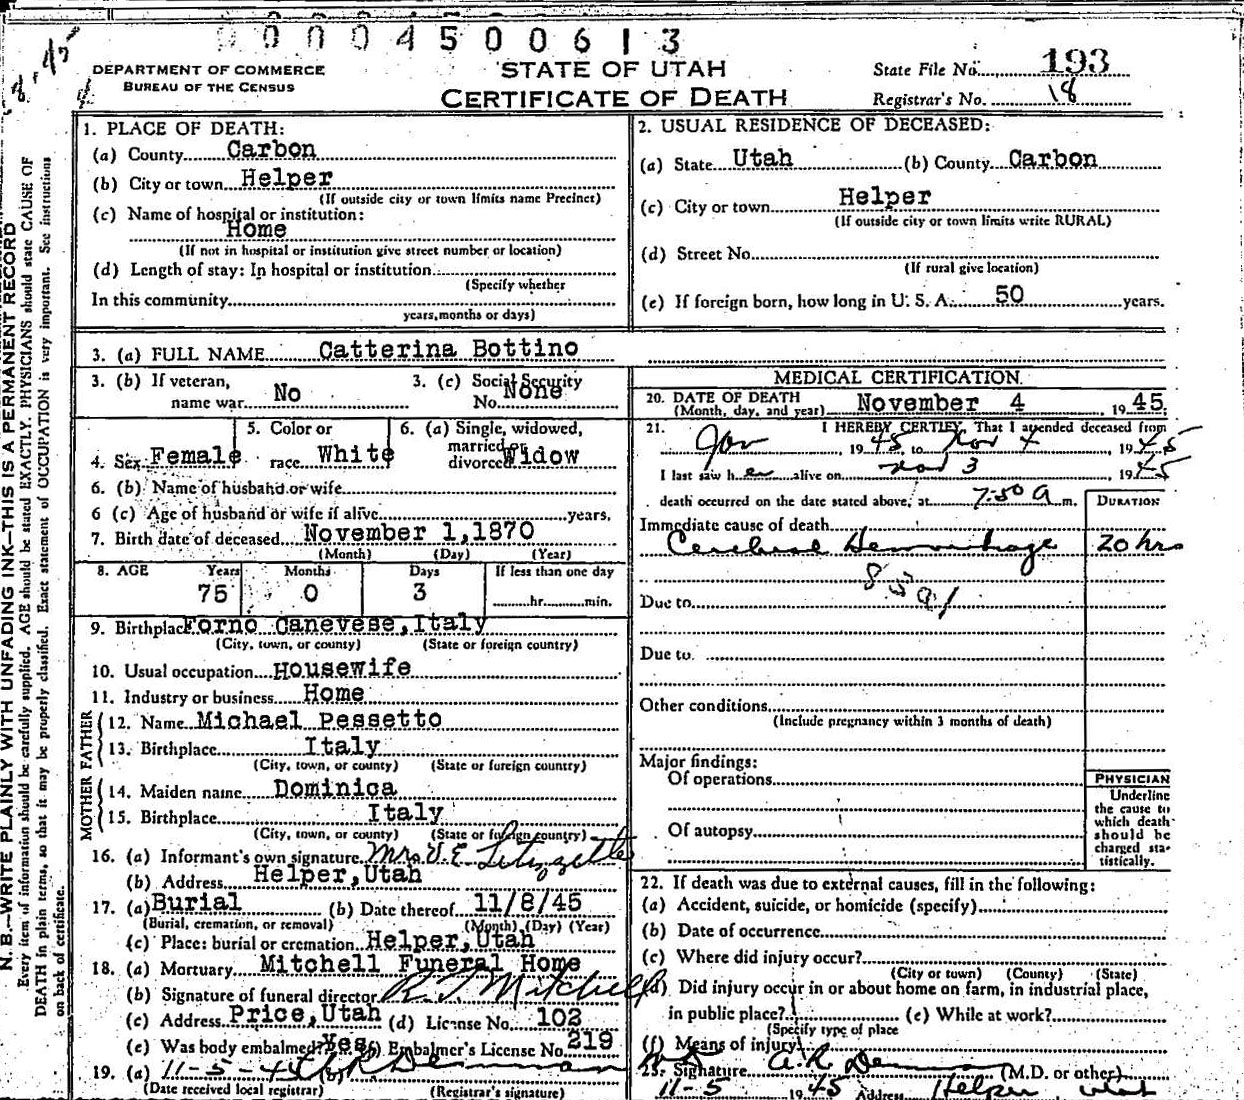 00004500613
DEPARTMENT OF COMMERCE
BUREAU OF THE CENSUS
STATE OF UTAH
CERTIFICATE OF DEATH
State File No. 193
Registrar's No. 18
N. B.—WRITE PLAINLY WITH UNFADING INK—THIS IS A PERMANENT RECORD
Every item of information should be carefully supplied. AGE should be stated EXACTLY. PHYSICIANS should state CAUSE OF
DEATH in plain terms, so that it may be properly classified. Exact statement of OCCUPATION is very important. See instructions
on back of certificate.
1. PLACE OF DEATH:
(a) County Carbon
(b) City or town Helper
(If outside city or town limits name Precinct)
(c) Name of hospital or institution:
Home
(If not in hospital or institution give street number or location)
(d) Length of stay: In hospital or institution
(Specify whether
In this community
years, months or days)
2. USUAL RESIDENCE OF DECEASED:
(a) State Utah (b) County Carbon
(c) City or town Helper
(If outside city or town limits write RURAL)
(d) Street No.
(If rural give location)
(e) If foreign born, how long in U. S. A. 50 years.
3. (a) FULL NAME Catterina Bottino
3. (b) If veteran,
name war No
3. (c) Social Security
No. None
4. Sex Female
5. Color or
race White
6. (a) Single, widowed,
married or
divorced Widow
6. (b) Name of husband or wife
6 (c) Age of husband or wife if alive years.
7. Birth date of deceased November 1,1870
(Month) (Day) (Year)
8. AGE Years Months Days If less than one day
75 0 3 hr. min.
9. Birthplace Forno Canevese,Italy
(City, town, or county) (State or foreign country)
10. Usual occupation Housewife
11. Industry or business Home
FATHER
12. Name Michael Pessetto
13. Birthplace Italy
(City, town, or county) (State or foreign country)
MOTHER
14. Maiden name Dominica
15. Birthplace Italy
(City, town, or county) (State or foreign country)
16. (a) Informant's own signature Mrs. V. E. Litizzette
(b) Address Helper,Utah
17. (a) Burial (b) Date thereof 11/8/45
(Burial, cremation, or removal) (Month) (Day) (Year)
(c) Place: burial or cremation Helper,Utah
18. (a) Mortuary Mitchell Funeral Home
(b) Signature of funeral director
(c) Address Price,Utah (d) License No. 102
(e) Was body embalmed? Yes (f) Embalmer's License No. 219
19. (a) 11-5-45 (b)
(Date received local registrar) (Registrar's signature)
MEDICAL CERTIFICATION
20. DATE OF DEATH
(Month, day, and year) November 4, 1945
21. I HEREBY CERTIFY, That I attended deceased from
Jan, 1945, to Nov 4 1945
I last saw her alive on Nov 3 1945
death occurred on the date stated above, at 7:50 A m.
DURATION
Immediate cause of death
Cerebral Hemorrhage 20 hrs
Due to
Due to
Other conditions
(Include pregnancy within 3 months of death)
Major findings:
Of operations
Of autopsy
PHYSICIAN
Underline
the cause to
which death
should be
charged sta-
tistically.
22. If death was due to external causes, fill in the following:
(a) Accident, suicide, or homicide (specify)
(b) Date of occurrence
(c) Where did injury occur?
(City or town) (County) (State)
(d) Did injury occur in or about home on farm, in industrial place,
in public place? (e) While at work?
(Specify type of place
(f) Means of injury
23. Signature (M.D. or other)
11-5 1945 Address Helper Utah